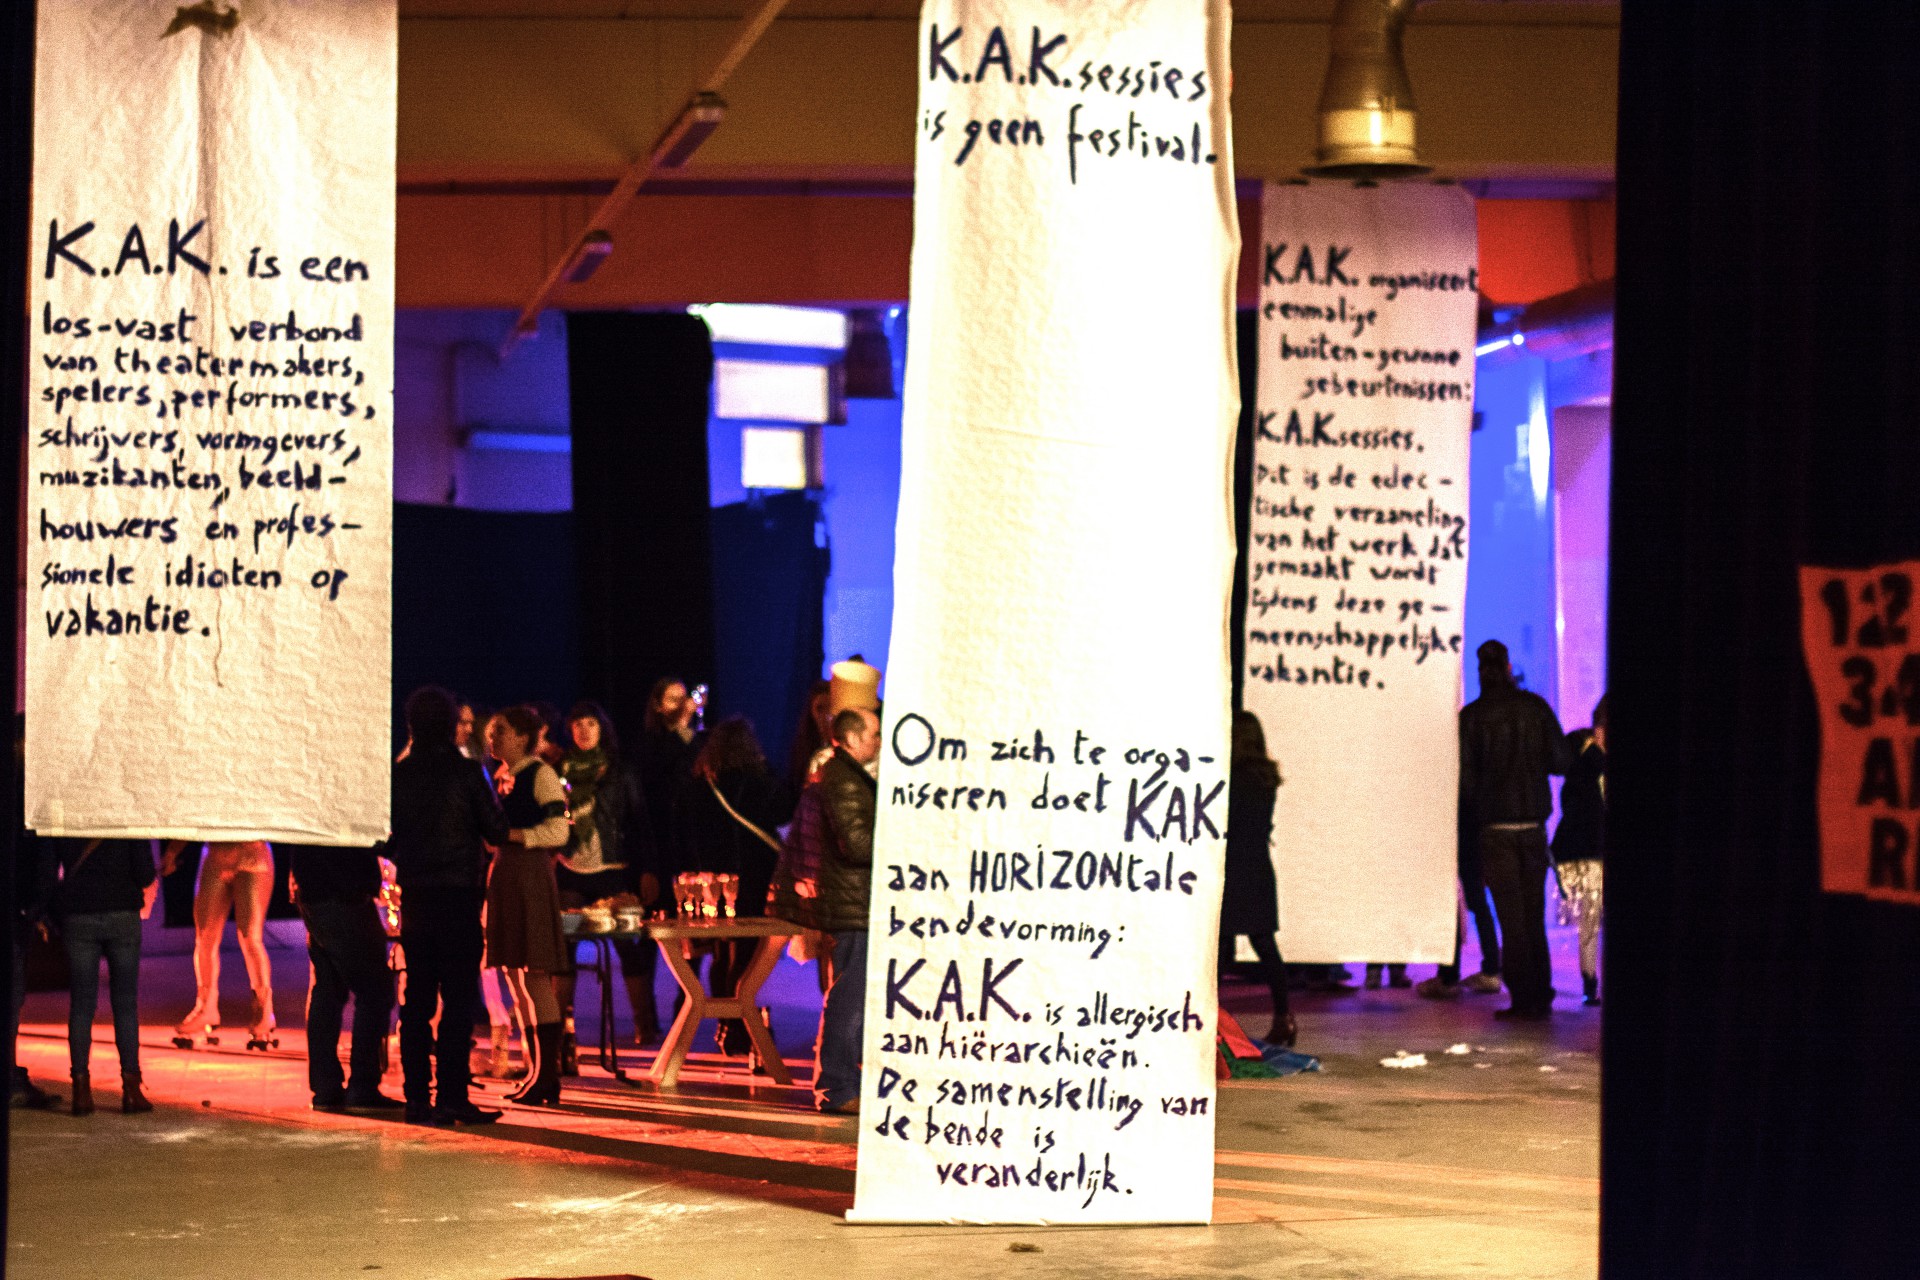 K.A.K. is een
los-vast verbond
van theatermakers,
spelers, performers,
schrijvers, vormgevers,
muzikanten, beeld-
houwers en profes-
sionele idioten op
vakantie.
K.A.K. sessies
is geen festival.
Om zich te orga-
niseren doet K.A.K.
aan HORIZONtale
bendevorming:
K.A.K. is allergisch
aan hiërarchieën.
De samenstelling van
de bende is
veranderlijk.
K.A.K. organiseert
eenmalige
buiten-gewone
gebeurtenissen:
K.A.K. sessies.
Dit is de eclec-
tische verzameling
van het werk dat
gemaakt wordt
tijdens deze ge-
meenschappelijke
vakantie.
1 2
3 4
A
R